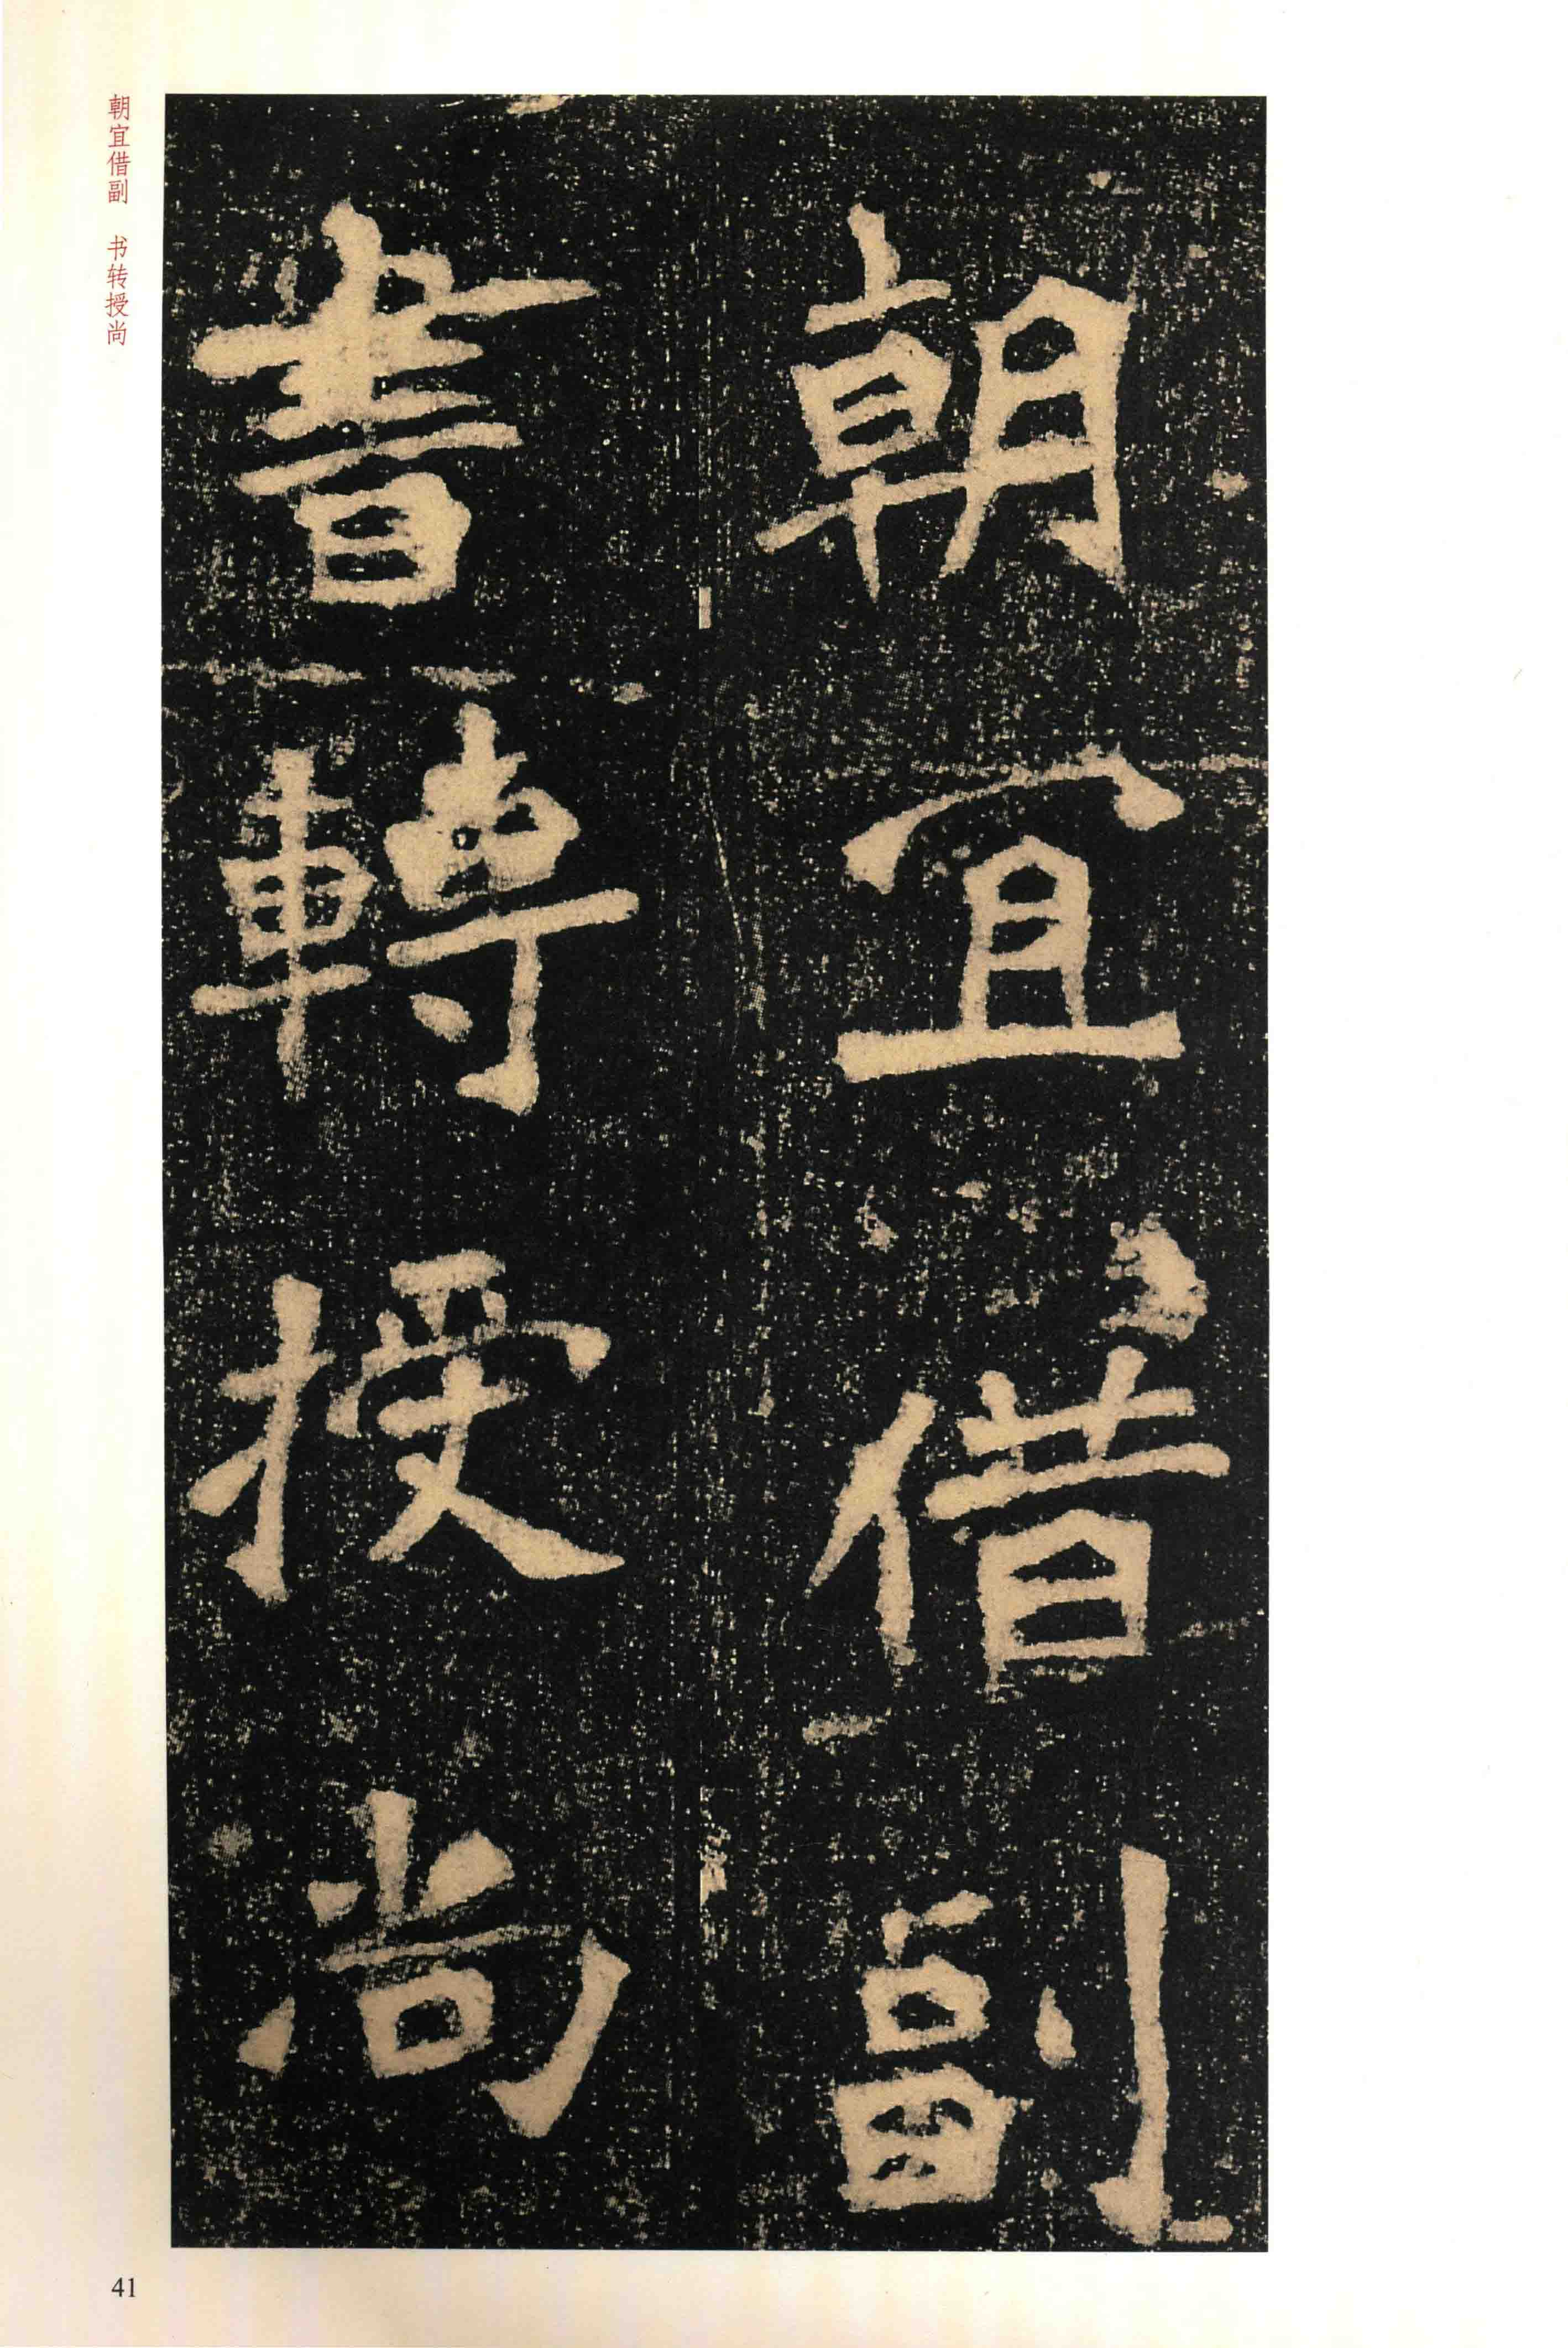 朝宜借副
書轉授尚
朝宜借副 书转授尚
41